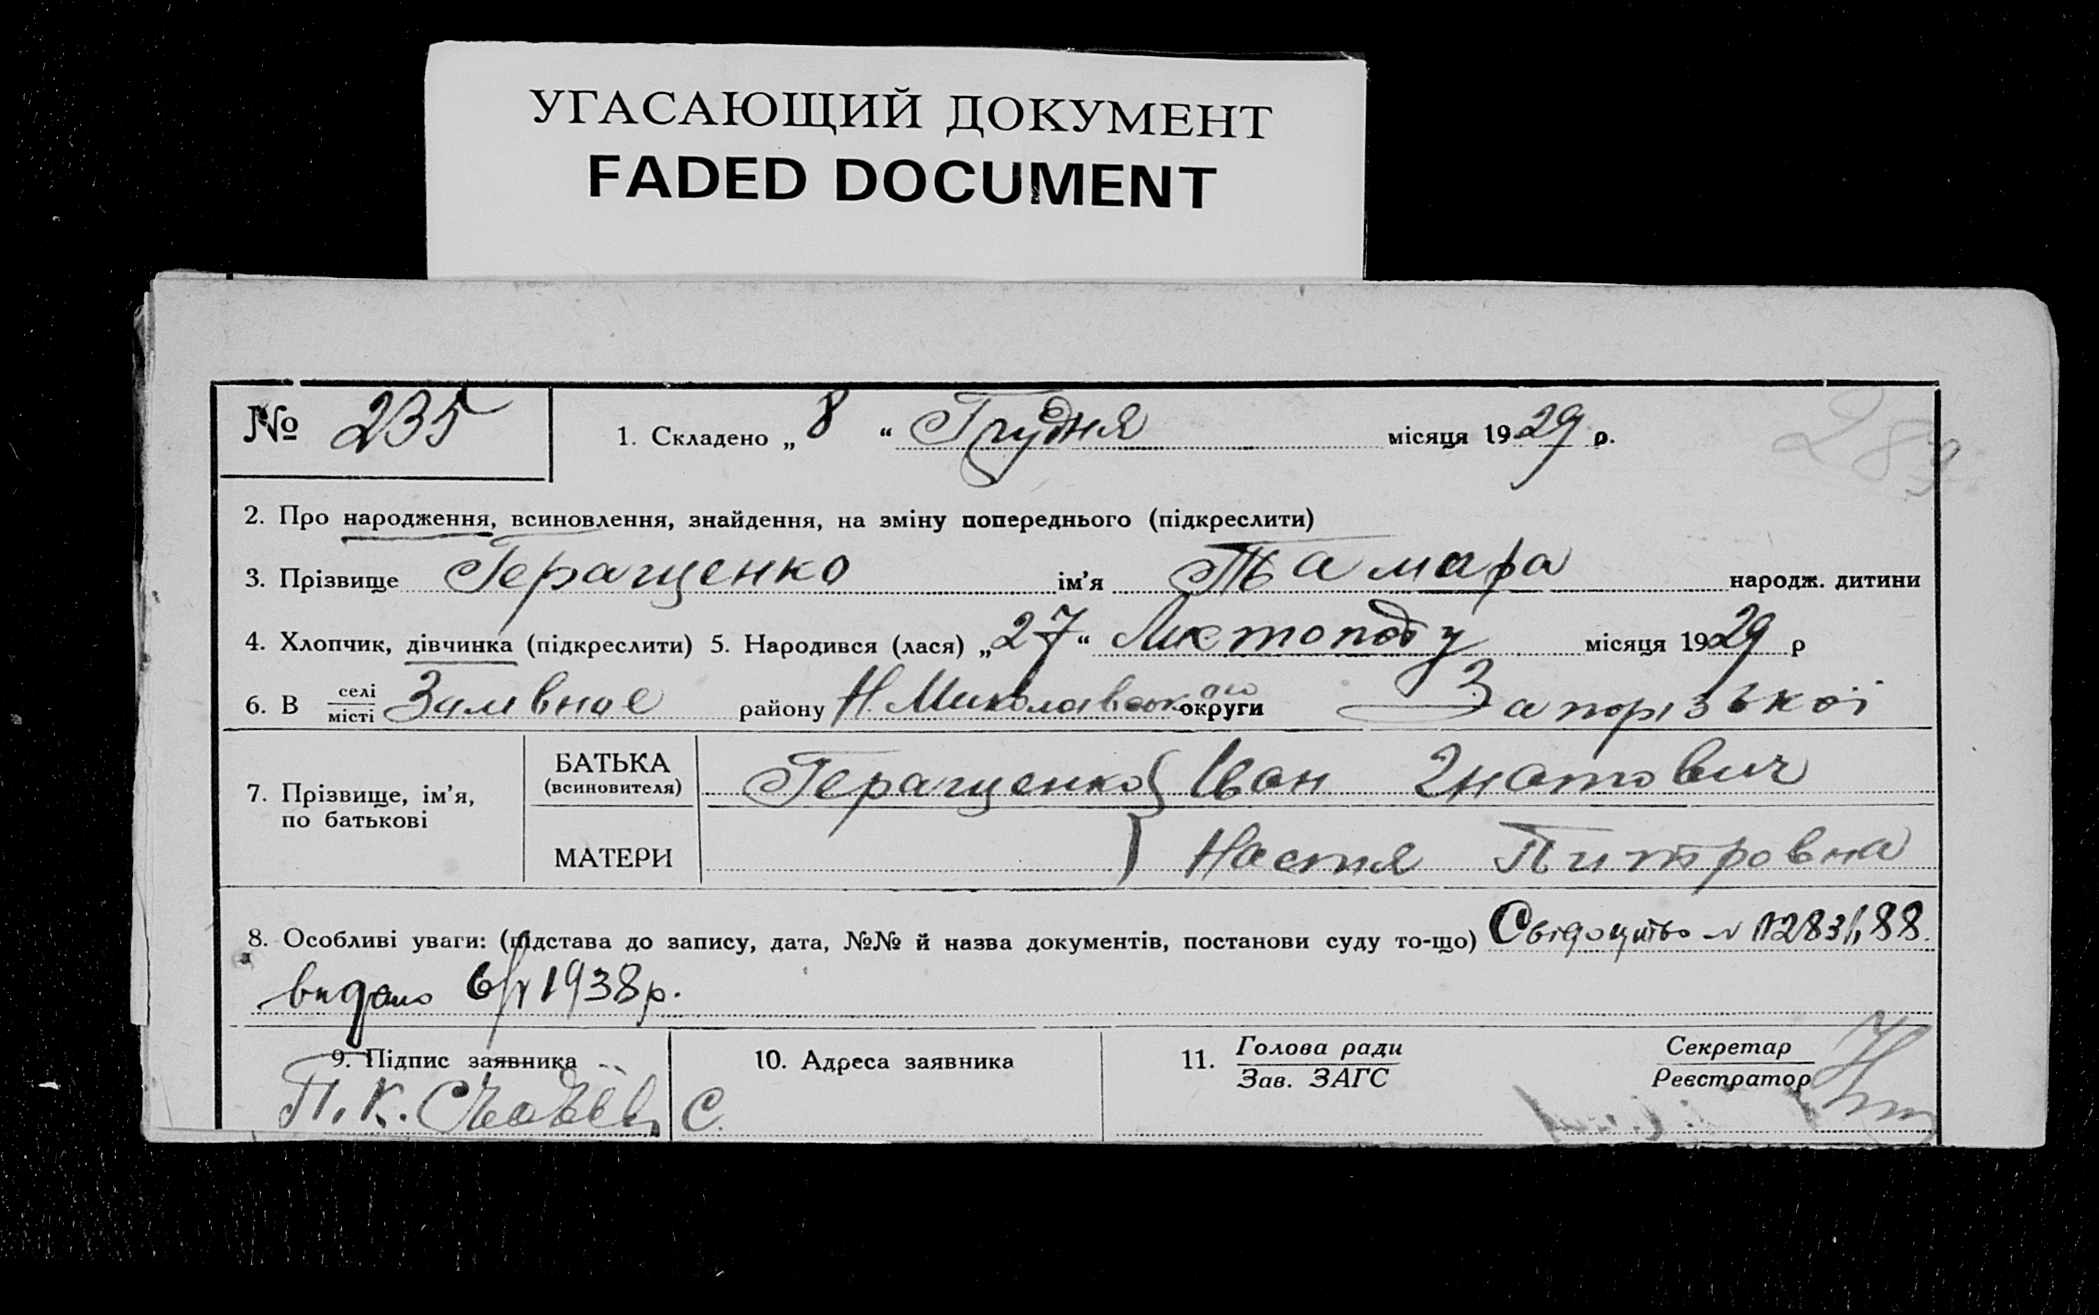 УГАСАЮЩИЙ ДОКУМЕНТ
FADED DOCUMENT
№ 235
1. Складено „ 8 “ Грудня місяця 1929 р.
2. Про народження, всиновлення, знайдення, на зміну попереднього (підкреслити)
3. Прізвище Геращенко ім’я Тамара народж. дитини
4. Хлопчик, дівчинка (підкреслити) 5. Народився (лася) „27“ Листопаду місяця 1929 р
6. В селі місті района Н. Миколаевського округи Запорізької
7. Прізвище, ім’я, по батькові
БАТЬКА (всиновителя) Геращенко Іван Гнатович
МАТЕРИ Настя Питровна
8. Особливі уваги: (підстава до запису, дата, №№ й назва документів, постанови суду то-що) Свідоцтво
видано 1938р.
9. Підпис заявника
10. Адреса заявника
11. Голова ради Зав. ЗАГС
Секретар Реєстратор
П. К.
С.